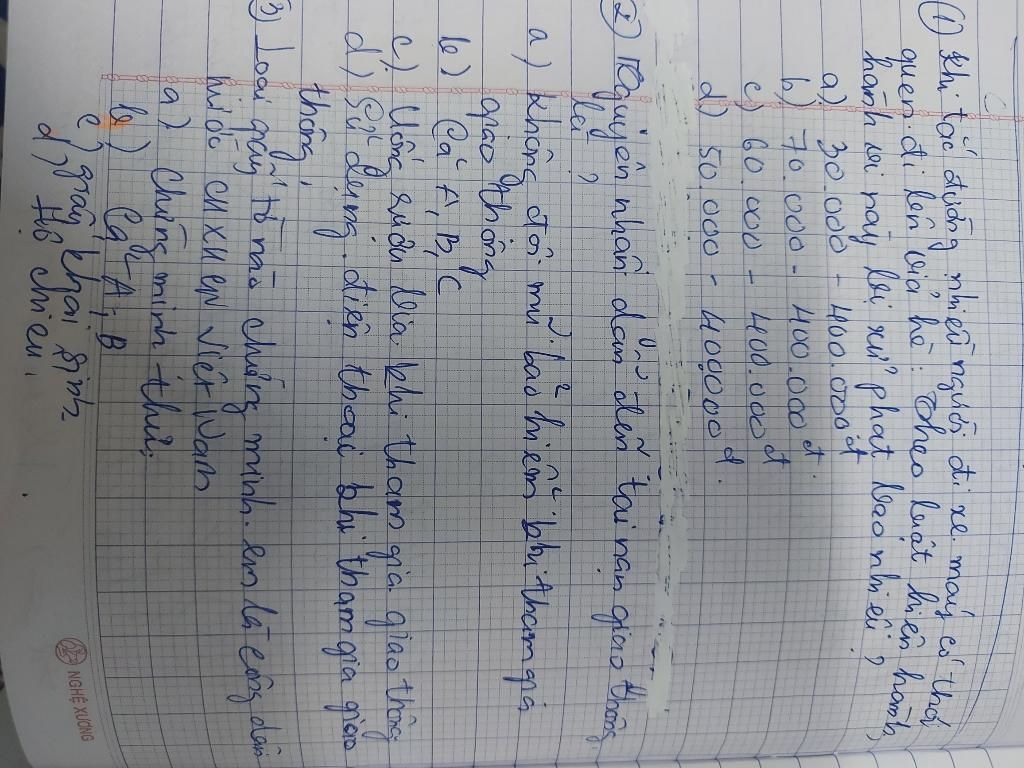 ① Khi tắc đường nhiều người đi xe máy có thói
quen đi lên vỉa hè. Theo luật hiện hành,
hành vi này bị xử phạt bao nhiêu?
a) 30.000 - 400.000đ
b) 70.000 - 400.000đ
c) 60.000 - 400.000đ
d) 50.000 - 400.000đ.
② Nguyên nhân dẫn đến tai nạn giao thông
là?
a) không đội mũ bảo hiểm khi tham gia
giao thông
b) Cả A, B, C
c) Uống rượu bia khi tham gia giao thông
d) Sử dụng điện thoại khi tham gia giao
thông,
③ Loại giấy tờ nào chứng minh em là công dân
nước CHXHCN Việt Nam
a) chứng minh thư,
b) Cả A, B
c) giấy khai sinh
d) Hộ chiếu,
NGHỆ XƯƠNG